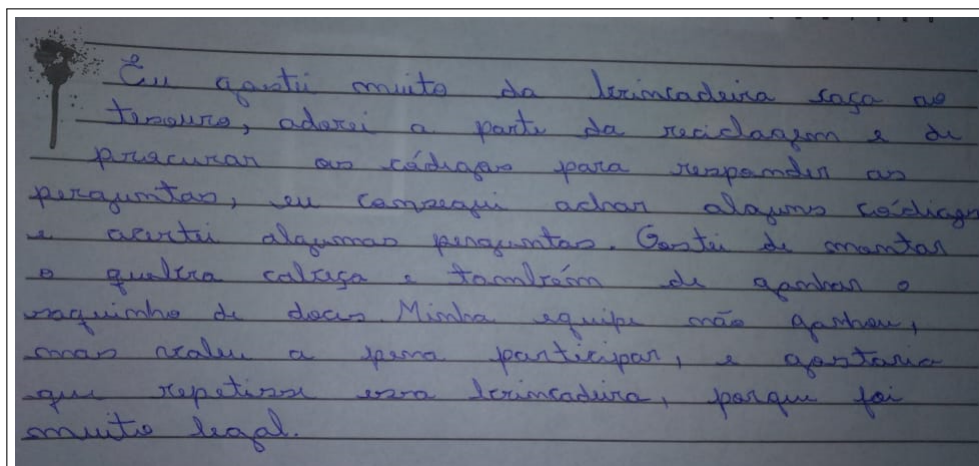 Eu gostei muito da brincadeira caça ao
tesouro, adorei a parte da reciclagem e de
procurar os códigos para responder as
perguntas, eu consegui achar alguns códigos
e acertei algumas perguntas. Gostei de montar
o quebra cabeça e também de ganhar o
saquinho de doces. Minha equipe não ganhou,
mas valeu a pena participar, e gostaria
que repetisse essa brincadeira, porque foi
muito legal.